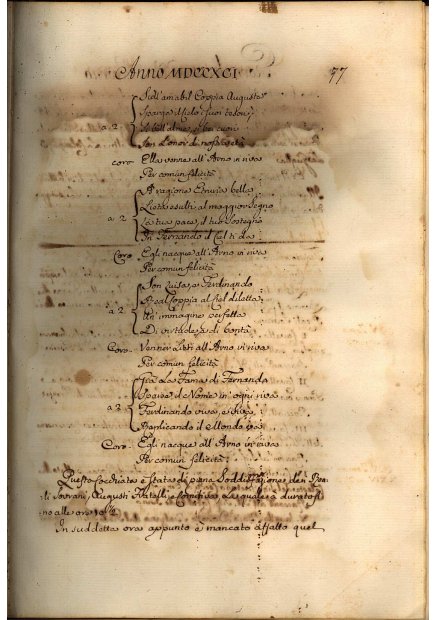 Anno MDCCXCI 77
Sull'amabil Coppia Augusta
Sparge il Cielo i suoi tesori,
a 2 Si bell'alme, si bei cuori
Son l'onor di nostra età
coro Ella venne all'Arno in riva
Per comun felicità
A ragione Etruria bella
Lieta esulti al maggior segno
a 2 La tua pace, il tuo sostegno
In Fernando il Ciel ti dà
Coro Egli nacque all'Arno in riva
Per comun felicità
Son Luisa, e Ferdinando
Real Coppia al Ciel diletta
a 2 Un' immagine perfetta
Di virtude, e di bontà
Coro Venner lieti all'Arno in riva
Per comun felicità
Già la Fama di Fernando
Sparse il Nome in ogni riva
a 2 Ferdinando viva, e viva
Replicando il Mondo va
Coro Egli nacque all'Arno in riva
Per comun felicità:
Questa è stata di piena Soddisfazione dei Rea-
li Sovrani, Augusti Fratelli, e Comitiva, La quale à durato fi-
no alle ore 10½
In suddetta ora appunto è mancato affatto quel